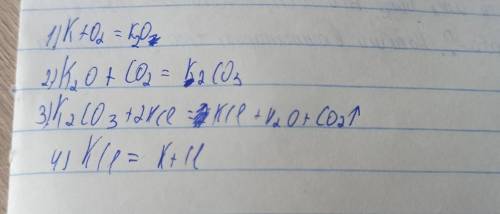 1) K + O₂ = K₂O₂
2) K₂O + CO₂ = K₂CO₃
3) K₂CO₃ + 2HCl = 2KCl + H₂O + CO₂↑
4) KCl = K + Cl